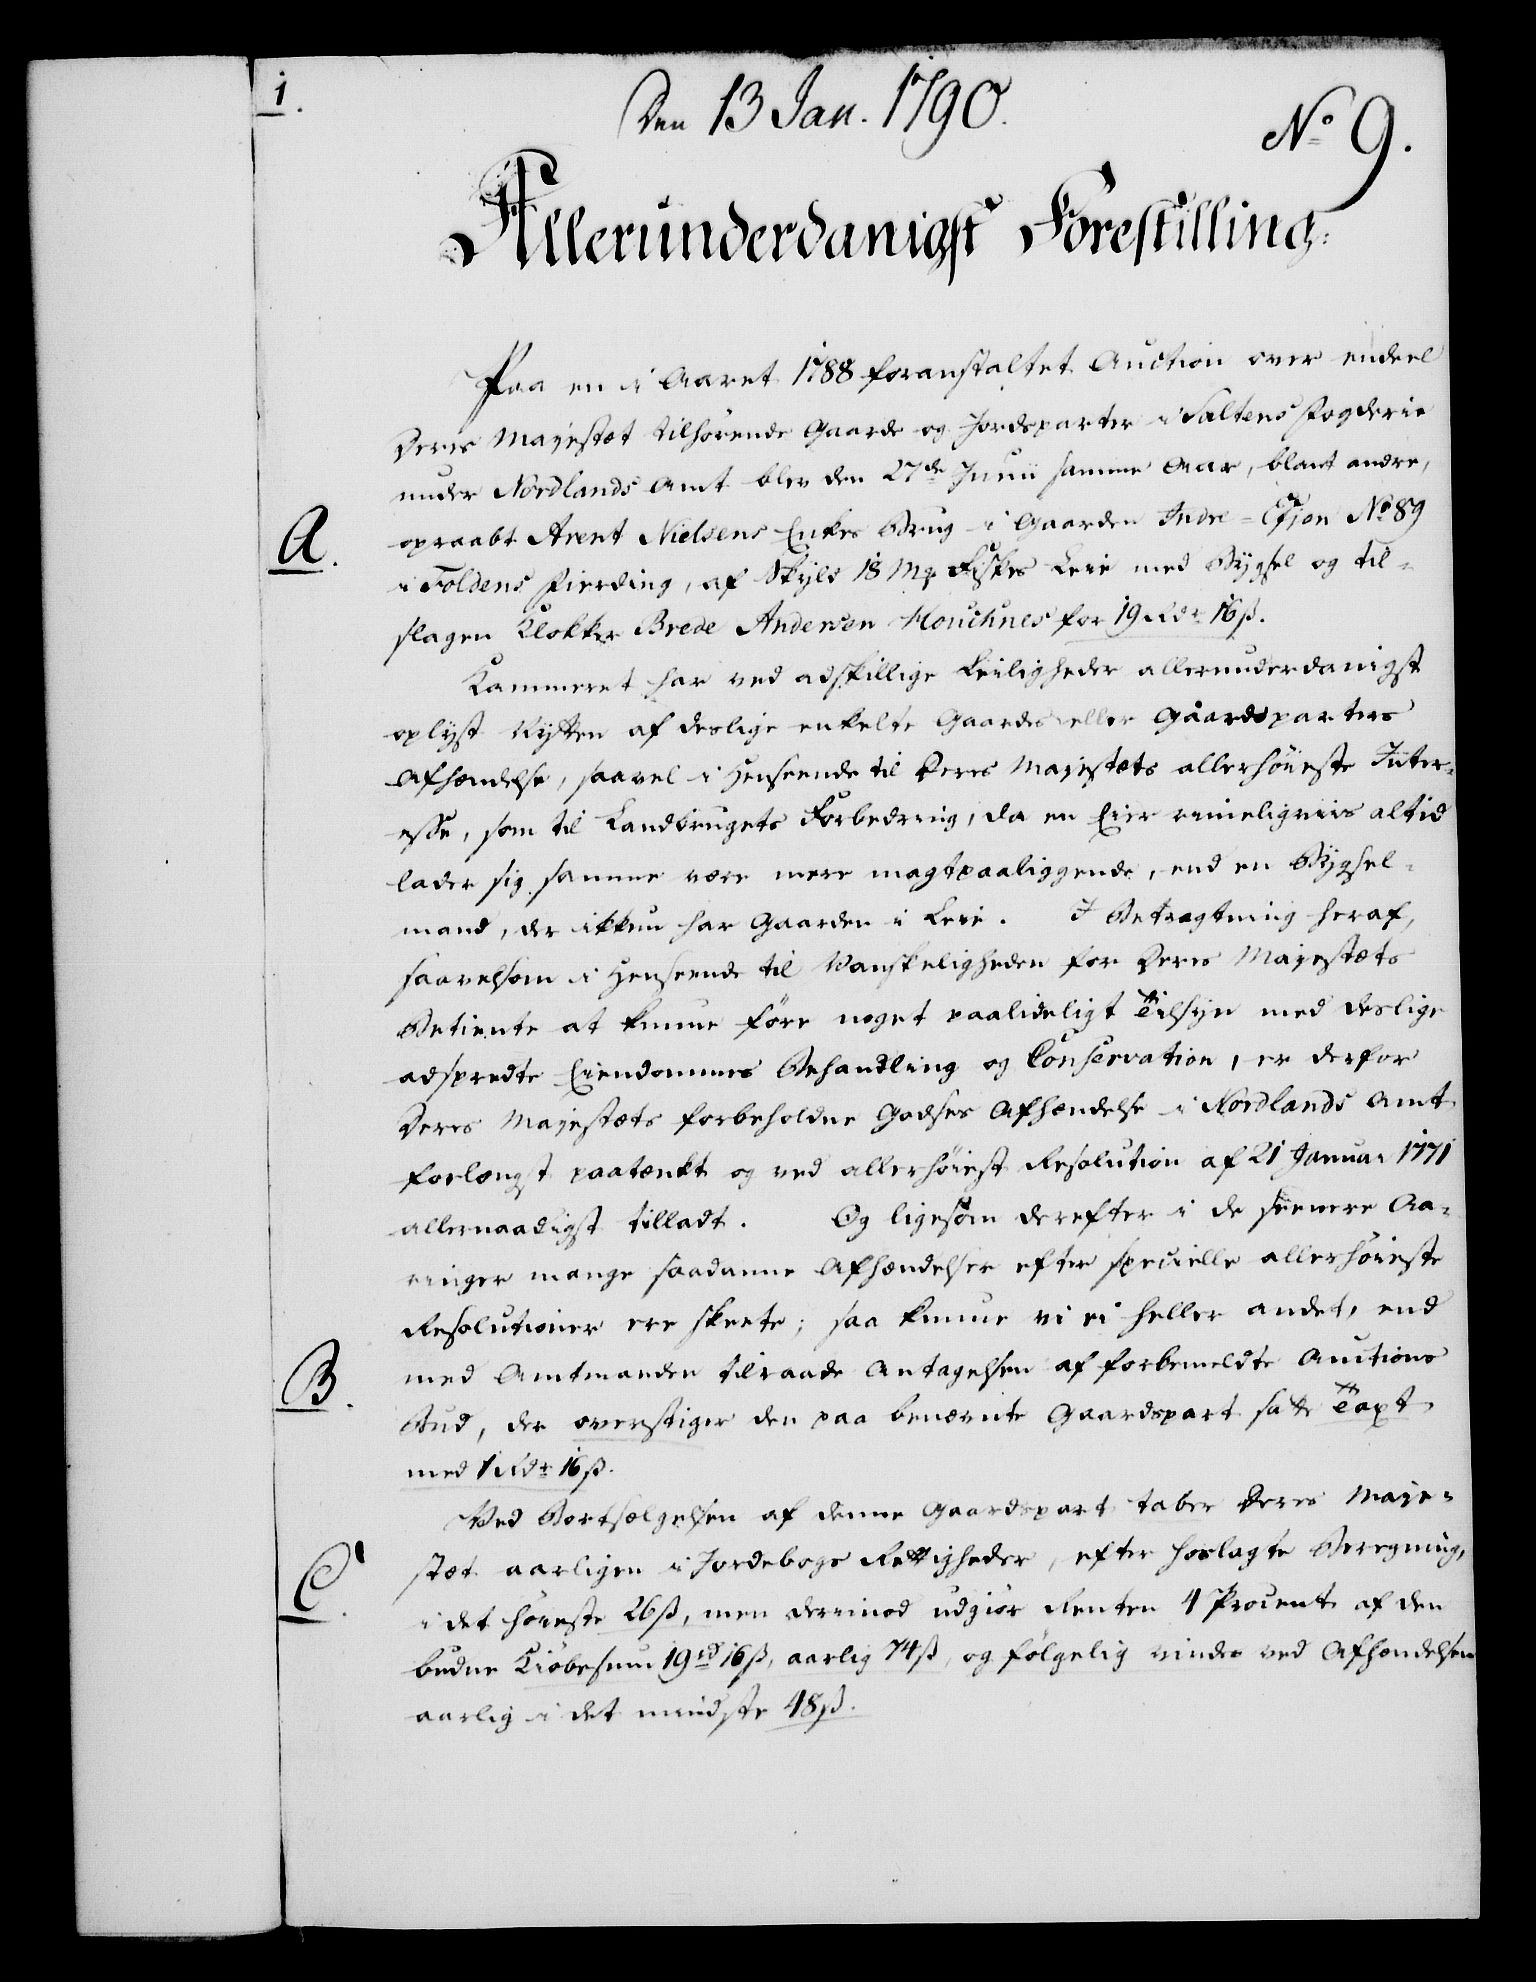 1.
Den 13 Jan. 1790.
No 9.
Allerunderdanigst Forestilling.
Paa en i Aaret 1788 foranstaltet Auction over endeel
Deres Majestæt tilhørende Gaarde og Jordeparter i Saltens Fogderie
under Nordlands Amt blev den 27de Junii samme Aar, blant andre,
A.
opraabt Arent Nielsens Enkes Brug i Gaarden Indre-Efjon No 89
i Foldens Fierding, af Skyld 18 Mk Fiskes Leie med Bygsel og til-
slagen Klokker Brede Andersen for 19 Rdr 16 ß.
Kammeret har ved adskillige Leiligheder allerunderdanigst
oplyst Nytten af deslige enkelte Gaardes eller Gaardsparters
Afhændelse, saavel i Henseende til Deres Majestæts allerhøieste Inter-
esse, som til Landbrugets Forbedring, da en Eier rimeligviis altid
lader sig samme være mere magtpaaliggende, end en Bygsel-
mand, der ikkun har Gaarden i Leie. I Betragtning heraf,
saavelsom i Henseende til Vanskeligheden for Deres Majestæts
Betiente at kunne føre noget paalideligt Tilsyn med deslige
adspredte Eiendommes Behandling og Conservation, er derfor
Deres Majestæts forbeholdne Godses Afhændelse i Nordlands Amt
forlængst paatænkt og ved allerhøiest Resolution af 21 Januar 1771
allernaadigst tilladt. Og ligesom derefter i de seenere Aa-
ringer mange saadanne Afhændelser efter specielle allerhøieste
Resolutioner ere skeete; saa kunne vi ei heller andet, end
B.
med Amtmanden tilraade Antagelsen af forbemeldte Auctions
Bud, der overstiger den paa benævnte Gaardspart satte Taxt
med 1 Rdr 16 ß.
Ved Bortsælgelsen af denne Gaardspart taber Deres Maje-
C.
stæt aarligen i Jordebogs Rettigheder, efter hoslagte Beregning,
i det høieste 26 ß, men derimod udgiør Renten 4 Procent af den
budne Kiøbesum 19 rd 16 ß, aarlig 74 ß, og følgelig vindes ved Afhændelsen
aarlig i det mindste 48 ß.